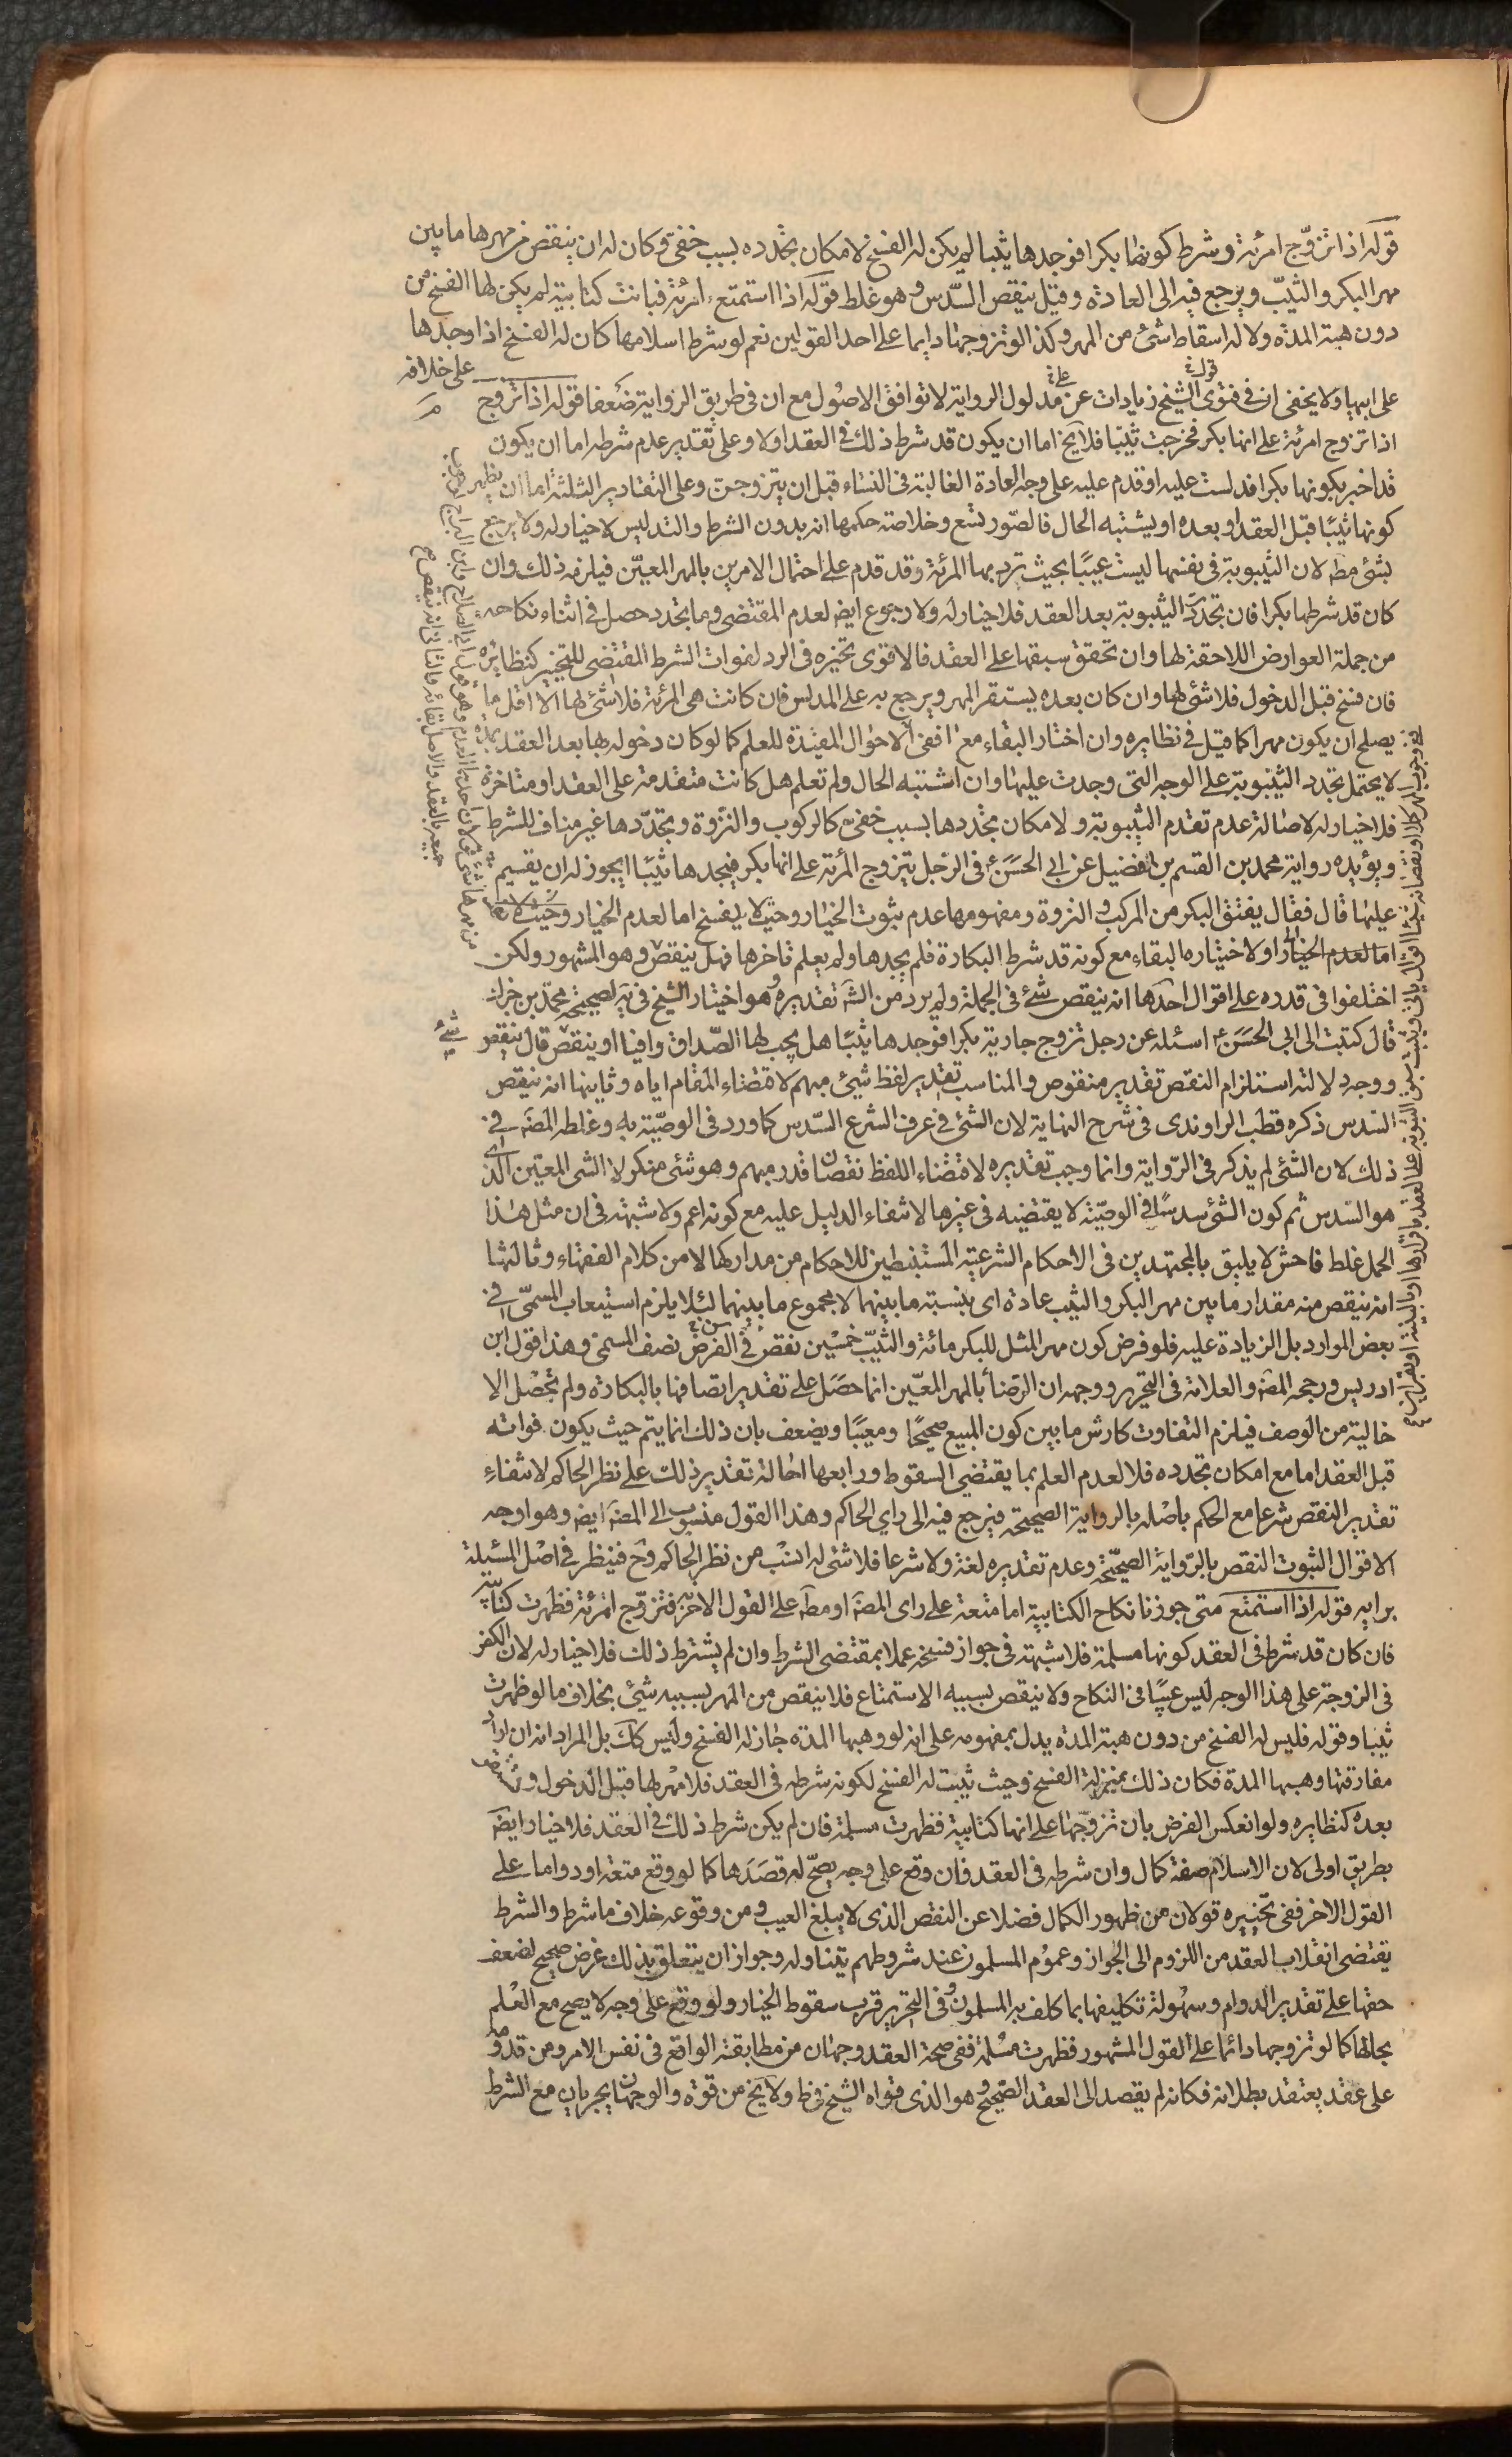 قوله اذا تزوّج امرئة وشرط كونها بكرا فوجدها ثيبا لم يكن له الفسخ لامكان تجدده بسبب خفيّ وكان له ان ينقص من مهرها ما بين
مهر البكر والثيب ويرجع فيه الى العادة وقيل ينقص السّدس وهو غلط قوله اذا استمتع امرئة فبانت كتابية لم يكن لها الفسخ من
دون هبة المدة ولا له اسقاط شئ من المهر وكذا لو تزوجها دايما على احد القولين نعم لو شرط اسلامها كان له الفسخ اذا وجدها
على خلافه
على ابيها ولا يخفى ان في فتوى الشيخ زيادات عن مدلول الرواية لا توافق الاصول مع ان في طريق الرواية ضعفا قوله اذا تزوج
اذا تزوج امرئة على انها بكر فخرجت ثيّبا فلا يخ اما ان يكون قد شرط ذلك في العقد اولا وعلى تقدير عدم شرطه اما ان يكون
قد اخبر بكونها بكرا فدلست عليه او قدم عليه على وجه العادة الغالبة في النساء قبل ان يتزوجن وعلى التقادير الثلثة اما ان يظهر
كونها ثيبًا قبل العقد او بعده او يشتبه الحال فالصّور تسع وخلاصة حكمها انه بدون الشرط والتدليس لا خيار له ولا يرجع
بشئ مطه لان الثيبوبة في نفسها ليست عيبًا بحيث ترد بها المرئة وقد قدم على احتمال الامرين بالمهر المعيّن فيلزمه ذلك وان
كان قد شرطها بكرا فان تجدّدت الثيبوبة بعد العقد فلا خيار له ولا رجوع ايضا لعدم المقتضى وما تجدد حصل في اثناء نكاحه
من جملة العوارض اللاحقة لها وان تحقق سبقها على العقد فالاقوى تخيّره في الرد لفوات الشرط المقتضى للتخيير كنظائره
فان فسخ قبل الدخول فلا شئ لها وان كان بعده يستقر المهر ويرجع به على المدلس فان كانت هي المرئة فلا شئ لها الا اقل ما
يصلح ان يكون مهرا كما قيل في نظايره وان اختار البقاء مع انفى الاحوال المفيدة للعلم كما لو كان دخوله بها بعد العقد بمدة
لا يحتمل تجدد الثيبوبة على الوجه التي وجدت عليها وان اشتبه الحال ولم تعلم هل كانت متقدمة على العقد او متاخرة
فلا خيار له لاصالة عدم تقدم الثيبوبة ولامكان تجددها بسبب خفيّ كالركوب والنزوة وتجدّدها غير مناف للشرط
ويؤيده رواية محمد بن القسم بن فضيل عن ابي الحسن ع في الرجل يتزوج المرئة على انها بكر فيجدها ثيّبا ايجوز له ان يقيم
عليها قال فقال يفتق البكر من المركب والنزوة ومفهومها عدم ثبوت الخيار وحيث لا يفسخ اما لعدم الخيار وحيث لا
اما لعدم الخيار او لاختياره البقاء مع كونه قد شرط البكارة فلم يجدها ولم يعلم تاخرها فهل ينقص وهو المشهور ولكن
اختلفوا في قدره على اقوال احدها انه ينقص شئ في الجملة ولم يرد من الشه تقديره وهو اختيار الشيخ في يه لصحيحة محمّد بن جزك
قال كتبت الى ابي الحسن ع اسئله عن رجل تزوج جارية بكرا فوجدها ثيّبا هل يجب لها الصّداق وافيا او ينقص قال ينقص
ووجه دلالته استلزام النقص تقدير منقوص والمناسب تقدير لفظ شيئ مبهم لاقتضاء المقام اياه وثانيها انه ينقص
السّدس ذكره قطب الراوندى في شرح النهاية لان الشئ في عرف الشرع السّدس كما ورد في الوصيّة به وغلطه المصه في
ذلك لان الشئ لم يذكر في الرّواية وانما وجب تقديره لاقتضاء اللفظ نقصان قدر مبهم وهو شئ منكر لا الشئ المعيّن الذى
هو السّدس ثم كون الشئ سدسًا في الوصيّة لا يقتضيه في غيرها لانتفاء الدليل عليه مع كونه اعم ولا شبهة في ان مثل هذا
الحمل غلط فاحش لا يليق بالمجتهدين في الاحكام الشرعيّة المستنبطين للاحكام من مداركها لا من كلام الفقهاء وثالثها
انه ينقص منه مقدار ما بين مهر البكر والثيب عادة اى بنسبة ما بينهما لا مجموع ما بينهما لئلا يلزم استيعاب المسمّى في
بعض الموارد بل الزيادة عليه فلو فرض كون مهر المثل للبكر مائة والثيّب خمسين نقص في الفرض نصف المسمى وهذا قول ابن
ادريس ورجحه المصه والعلامة في التحرير ووجهه ان الرضا بالمهر المعيّن انما حصل على تقدير اتصافها بالبكارة ولم تحصل الا
خالية من الوصف فيلزم التفاوت كارش ما بين كون المبيع صحيحًا ومعيبًا ويضعف بان ذلك انما يتم حيث يكون فواته
قبل العقد اما مع امكان تجدده فلا لعدم العلم بما يقتضى السقوط ورابعها احالة تقدير ذلك على نظر الحاكم لانتفاء
تقدير النقص شرعا مع الحكم باصله بالرواية الصحيحة فيرجع فيه الى راي الحاكم وهذا القول منسوب الى المصه ايضه وهو اوجه
الاقوال لثبوت النقص بالرّواية الصحيحة وعدم تقديره لغة ولا شرعا فلا شئ له انسب من نظر الحاكم وح فينظر في اصل المسئلة
برايه قوله اذا استمتع متى جوزنا نكاح الكتابية اما متعة على راى المصه او مطه على القول الاخر فتزوّج امرئة فظهرت كتابيّة
فان كان قد شرط في العقد كونها مسلمة فلا شبهة في جواز فسخه عملا بمقتضى الشرط وان لم يشترط ذلك فلا خيار له لان الكفر
في الزوجة على هذا الوجه ليس عيبًا في النكاح ولا ينقص بسببه الاستمتاع فلا ينقص من المهر بسببه شئ بخلاف ما لو ظهرت
ثيبا وقوله فليس له الفسخ من دون هبة المدة يدل بمفهومه على انه لو وهبها المدة جاز له الفسخ وليس كك بل المراد انه ان اراد
مفارقتها وهبها المدة فكان ذلك بمنزلة الفسخ وحيث ثيبت له الفسخ لكونه شرطه في العقد فلا مهر لها قبل الدخول و
بعده كنظايره ولو انعكس الفرض بان تزوّجها على انها كتابية فظهرت مسلمة فان لم يكن شرط ذلك في العقد فلا خيار ايضه
بطريق اولى لان الاسلام صفة كمال وان شرطه في العقد فان وقع على وجه يصحّ له قصدها كما لو وقع متعة او دواما على
القول الاخر ففي تخييره قولان من ظهور الكمال فضلا عن النقص الذى لا يبلغ العيب ومن وقوعه خلاف ما شرط والشرط
يقتضى انقلاب العقد من اللزوم الى الجواز وعموم المسلمون عند شروطهم يتناوله وجواز ان يتعلق بذلك غرض صحيح لضعف
حقها على تقدير الدوام وسهولة تكليفها بما كلف به المسلمون وفى التحرير قرب سقوط الخيار ولو وقع على وجه لا يصح مع العلم
بحالها كما لو تزوجها دائما على القول المشهور فظهرت مسلمة ففى صحة العقد وجهان من مطابقة الواقع في نفس الامر ومن قدومه
على عقد يعتقد بطلانه فكانه لم يقصد الى العقد الصّحيح وهو الذى قواه الشيخ في ط ولا يخ من قوة والوجهان يجريان مع الشرط